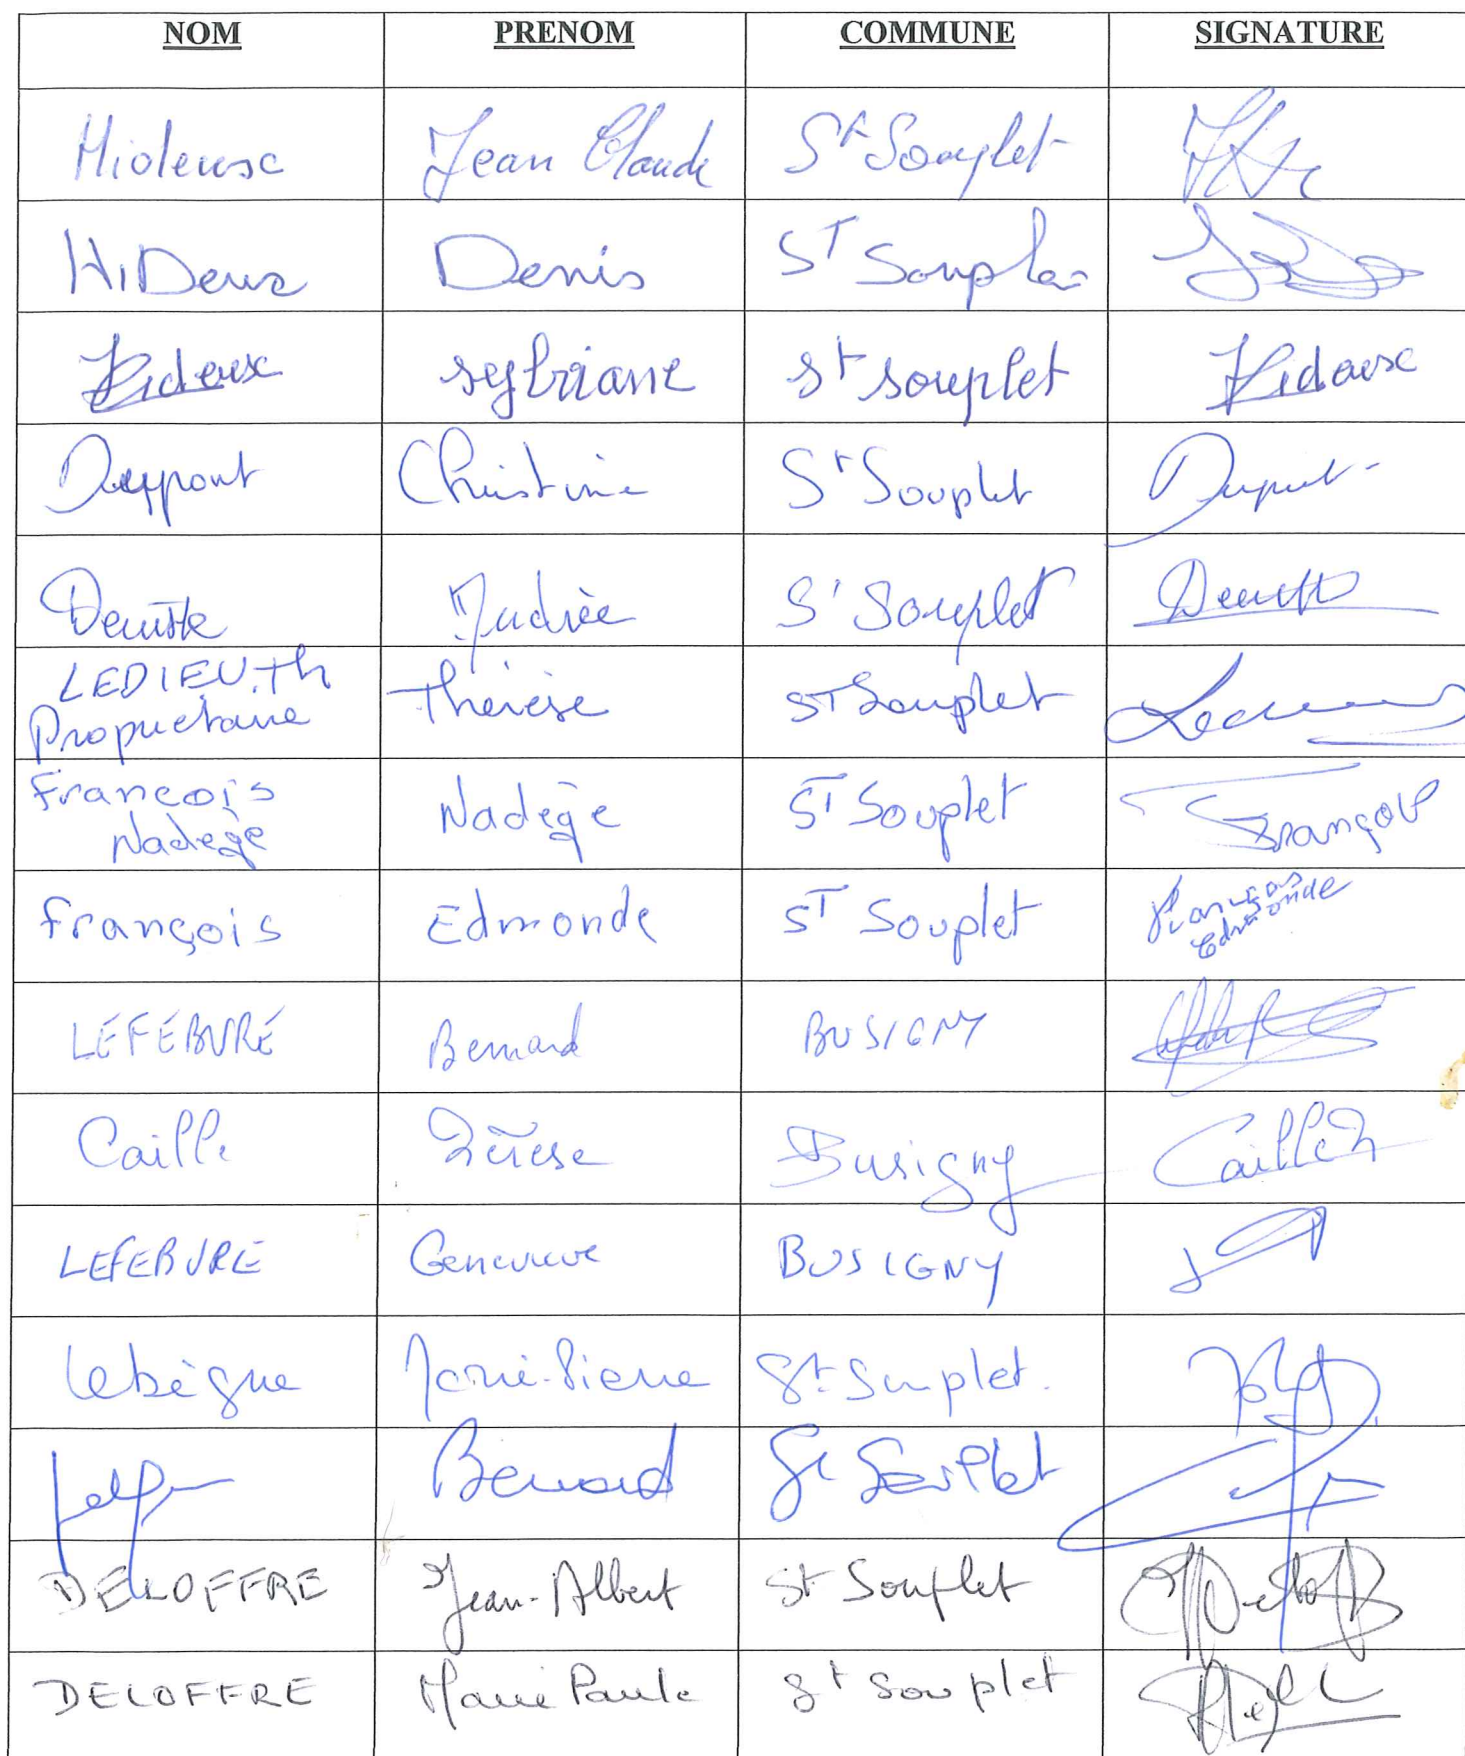 NOM PRENOM COMMUNE SIGNATURE
Hideux Jean Claude St Souplet
HiDeux Denis ST Souplet
Hideux sylviane St souplet Hideux
Duppont Christine St Souplet
Andrée St Souplet
LEDIEU.Th Thérèse ST Souplet
Propriétaire
François Nadège ST Souplet François
Nadège
François Edmonde ST Souplet François
Edmonde
LEFEBVRE Bernard BUSIGNY
Caille Busigny Caillez
LEFEBVRE Genevieve BUSIGNY
Lebègue Marie-Pierre St Souplet.
Bernard St Souplet
DELOFFRE Jean-Albert St Souplet
DELOFFRE Marie Paule St Souplet